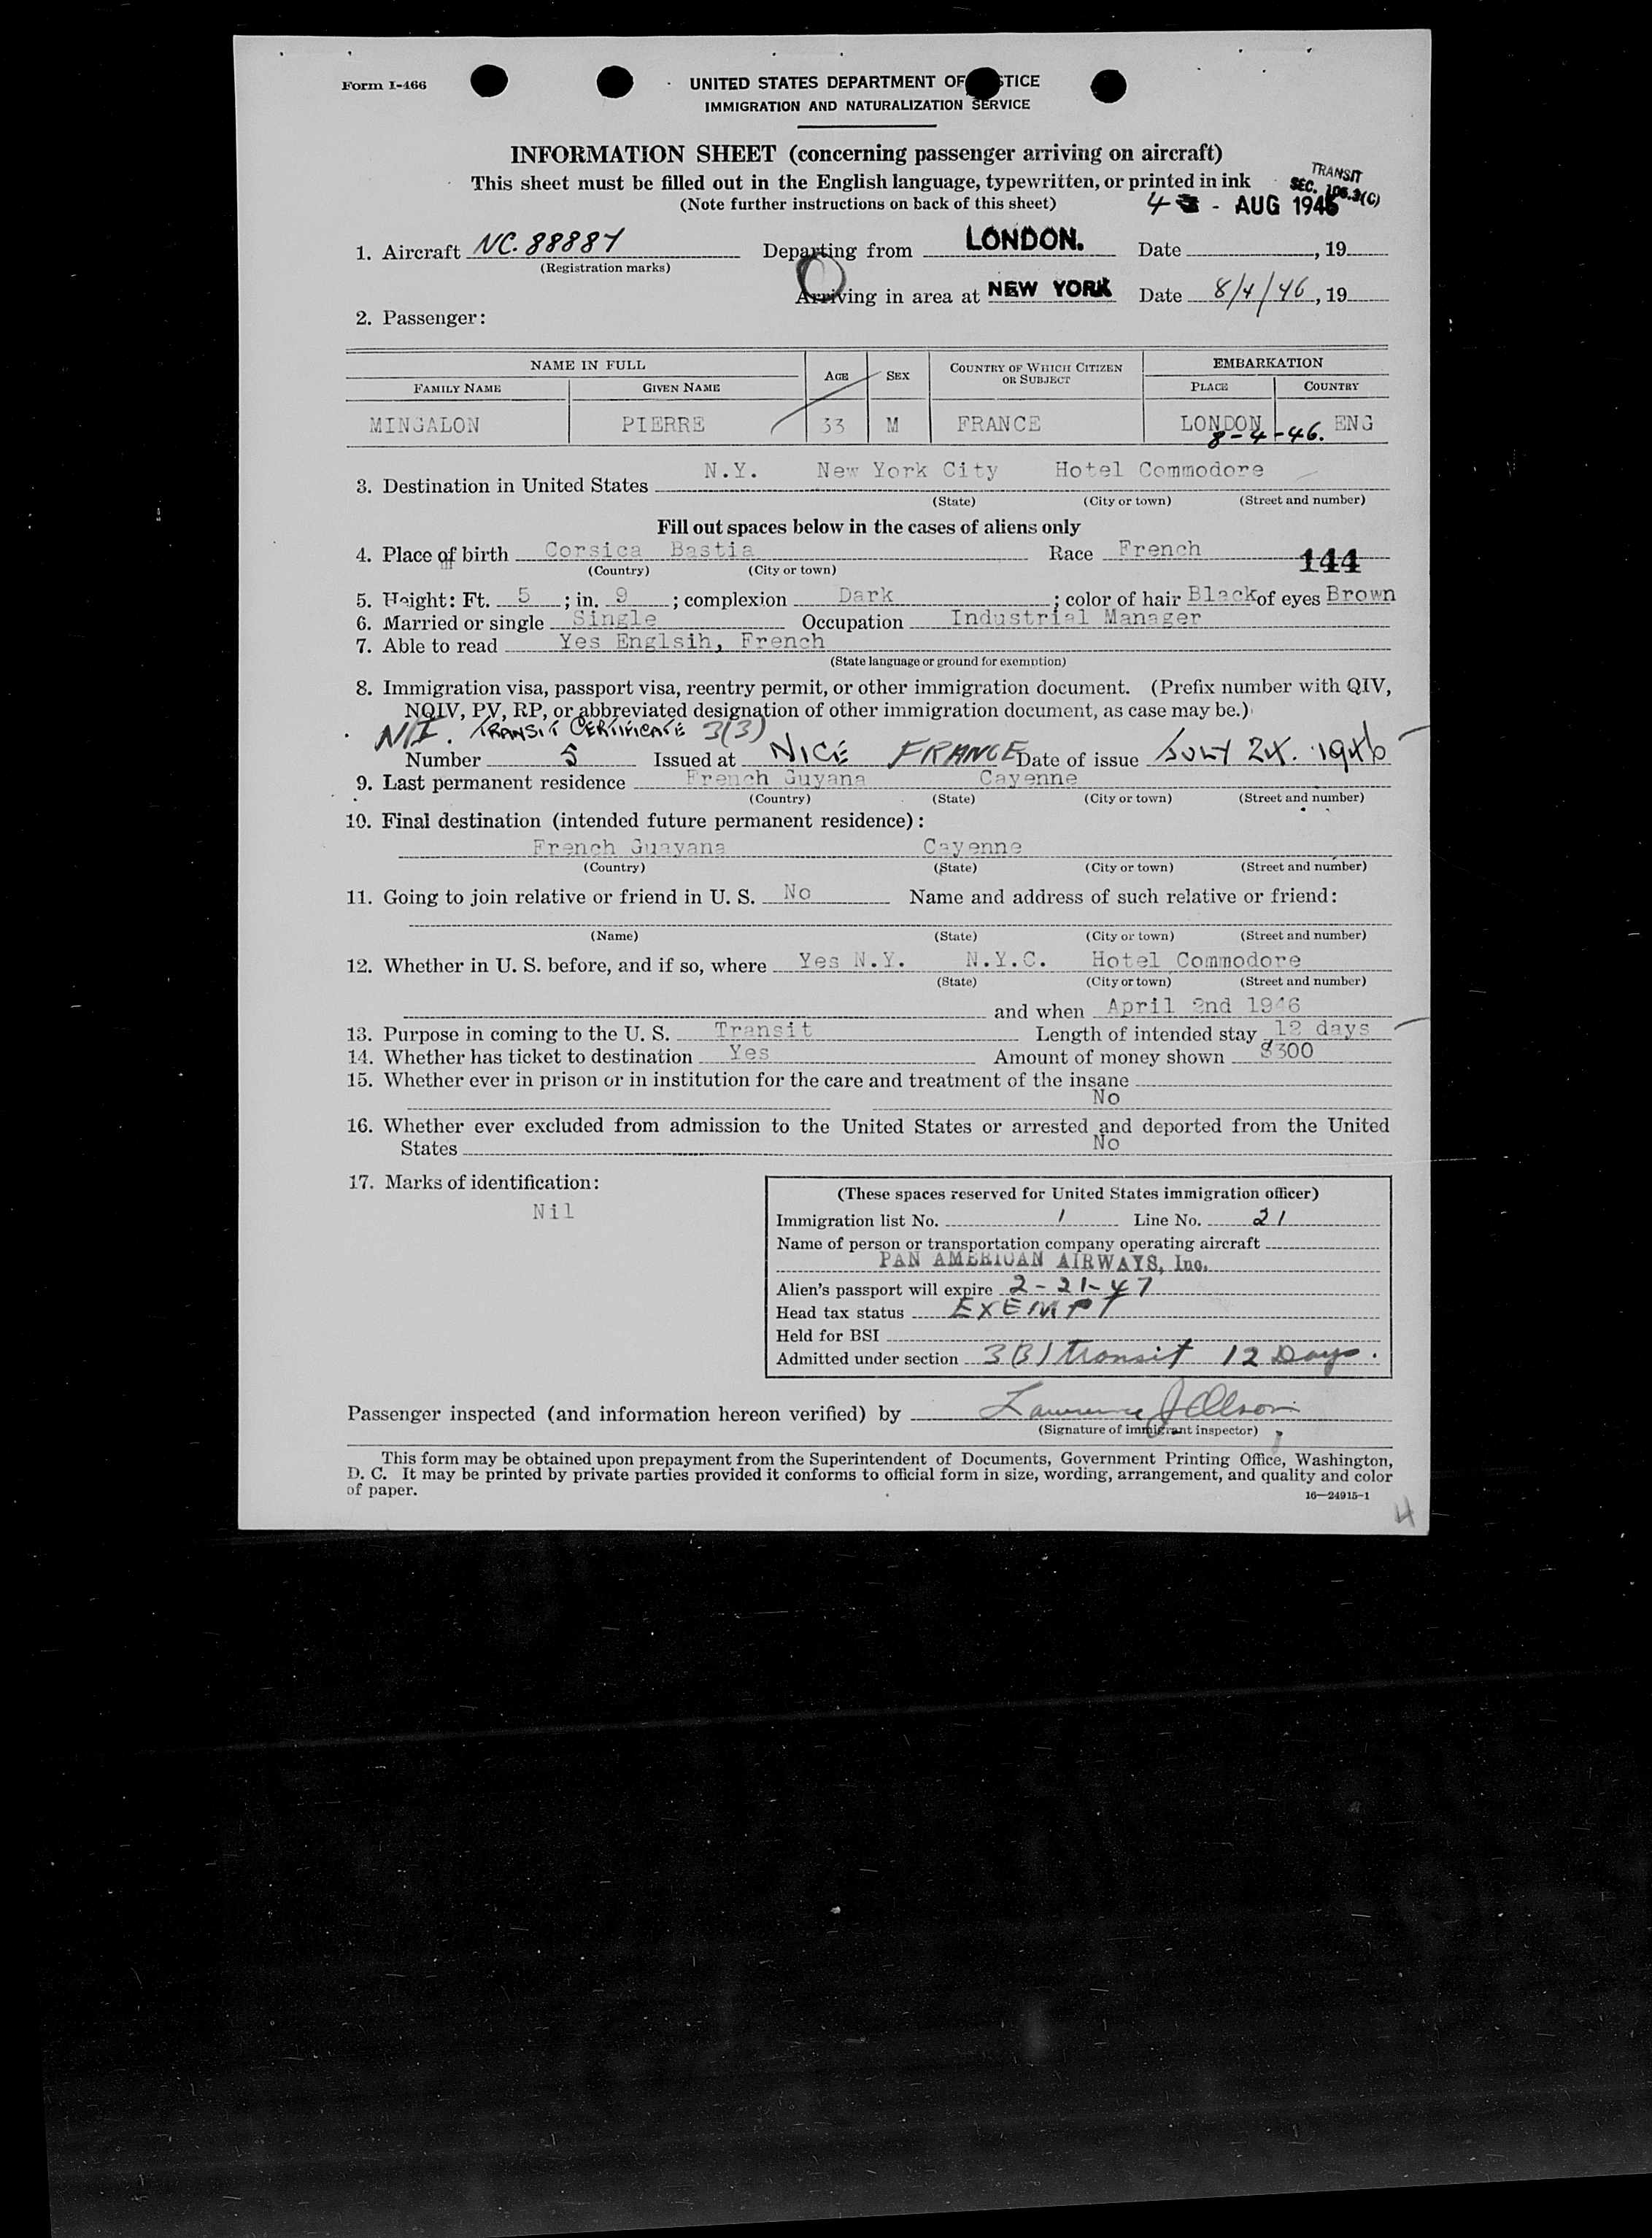 Form I-466
UNITED STATES DEPARTMENT OF STICE
IMMIGRATION AND NATURALIZATION SERVICE
INFORMATION SHEET (concerning passenger arriving on aircraft)
This sheet must be filled out in the English language, typewritten, or printed in ink
TRANSIT
SEC. 106.3(C)
(Note further instructions on back of this sheet)
4 - AUG 1946
1. Aircraft NC. 88887 Departing from LONDON. Date , 19
(Registration marks)
Arriving in area at NEW YORK Date 8/4/46, 19
2. Passenger:
NAME IN FULL AGE SEX COUNTRY OF WHICH CITIZEN OR SUBJECT EMBARKATION
FAMILY NAME GIVEN NAME PLACE COUNTRY
MINGALON PIERRE 33 M FRANCE LONDON ENG
8-4-46.
3. Destination in United States N.Y. New York City Hotel Commodore
(State) (City or town) (Street and number)
Fill out spaces below in the cases of aliens only
4. Place of birth Corsica Bastia Race French 144
(Country) (City or town)
5. Height: Ft. 5; in. 9; complexion Dark; color of hair Black of eyes Brown
6. Married or single Single Occupation Industrial Manager
7. Able to read Yes Englsih, French
(State language or ground for exemption)
8. Immigration visa, passport visa, reentry permit, or other immigration document. (Prefix number with QIV,
NQIV, PV, RP, or abbreviated designation of other immigration document, as case may be.)
N/I. TRANSIT CERTIFICATE 3(3)
Number 5 Issued at NICE FRANCE Date of issue JULY 24. 1946
9. Last permanent residence French Guyana Cayenne
(Country) (State) (City or town) (Street and number)
10. Final destination (intended future permanent residence):
French Guayana Cayenne
(Country) (State) (City or town) (Street and number)
11. Going to join relative or friend in U. S. No Name and address of such relative or friend:
(Name) (State) (City or town) (Street and number)
12. Whether in U. S. before, and if so, where Yes N.Y. N.Y.C. Hotel Commodore
(State) (City or town) (Street and number)
and when April 2nd 1946
13. Purpose in coming to the U. S. Transit Length of intended stay 12 days
14. Whether has ticket to destination Yes Amount of money shown $300
15. Whether ever in prison or in institution for the care and treatment of the insane
No
16. Whether ever excluded from admission to the United States or arrested and deported from the United
States No
17. Marks of identification:
Nil
(These spaces reserved for United States immigration officer)
Immigration list No. 1 Line No. 21
Name of person or transportation company operating aircraft
PAN AMERICAN AIRWAYS, Inc.
Alien's passport will expire 2-21-47
Head tax status EXEMPT
Held for BSI
Admitted under section 3(3) transit 12 Days.
Passenger inspected (and information hereon verified) by Lawrence J Olson
(Signature of immigrant inspector)
This form may be obtained upon prepayment from the Superintendent of Documents, Government Printing Office, Washington,
D. C. It may be printed by private parties provided it conforms to official form in size, wording, arrangement, and quality and color
of paper.
16—24915-1
4